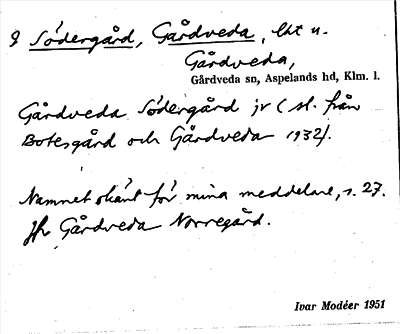 Södergård, Gårdveda, lht u.
Gårdveda,
Gårdveda sn, Aspelands hd, Klm. l.
Gårdveda Södergård jr (sl. från
Botesgård och Gårdveda 1932).
Namnet okänt för mina meddelare, s. 27.
Jfr Gårdveda Norregård.
Ivar Modéer 1951